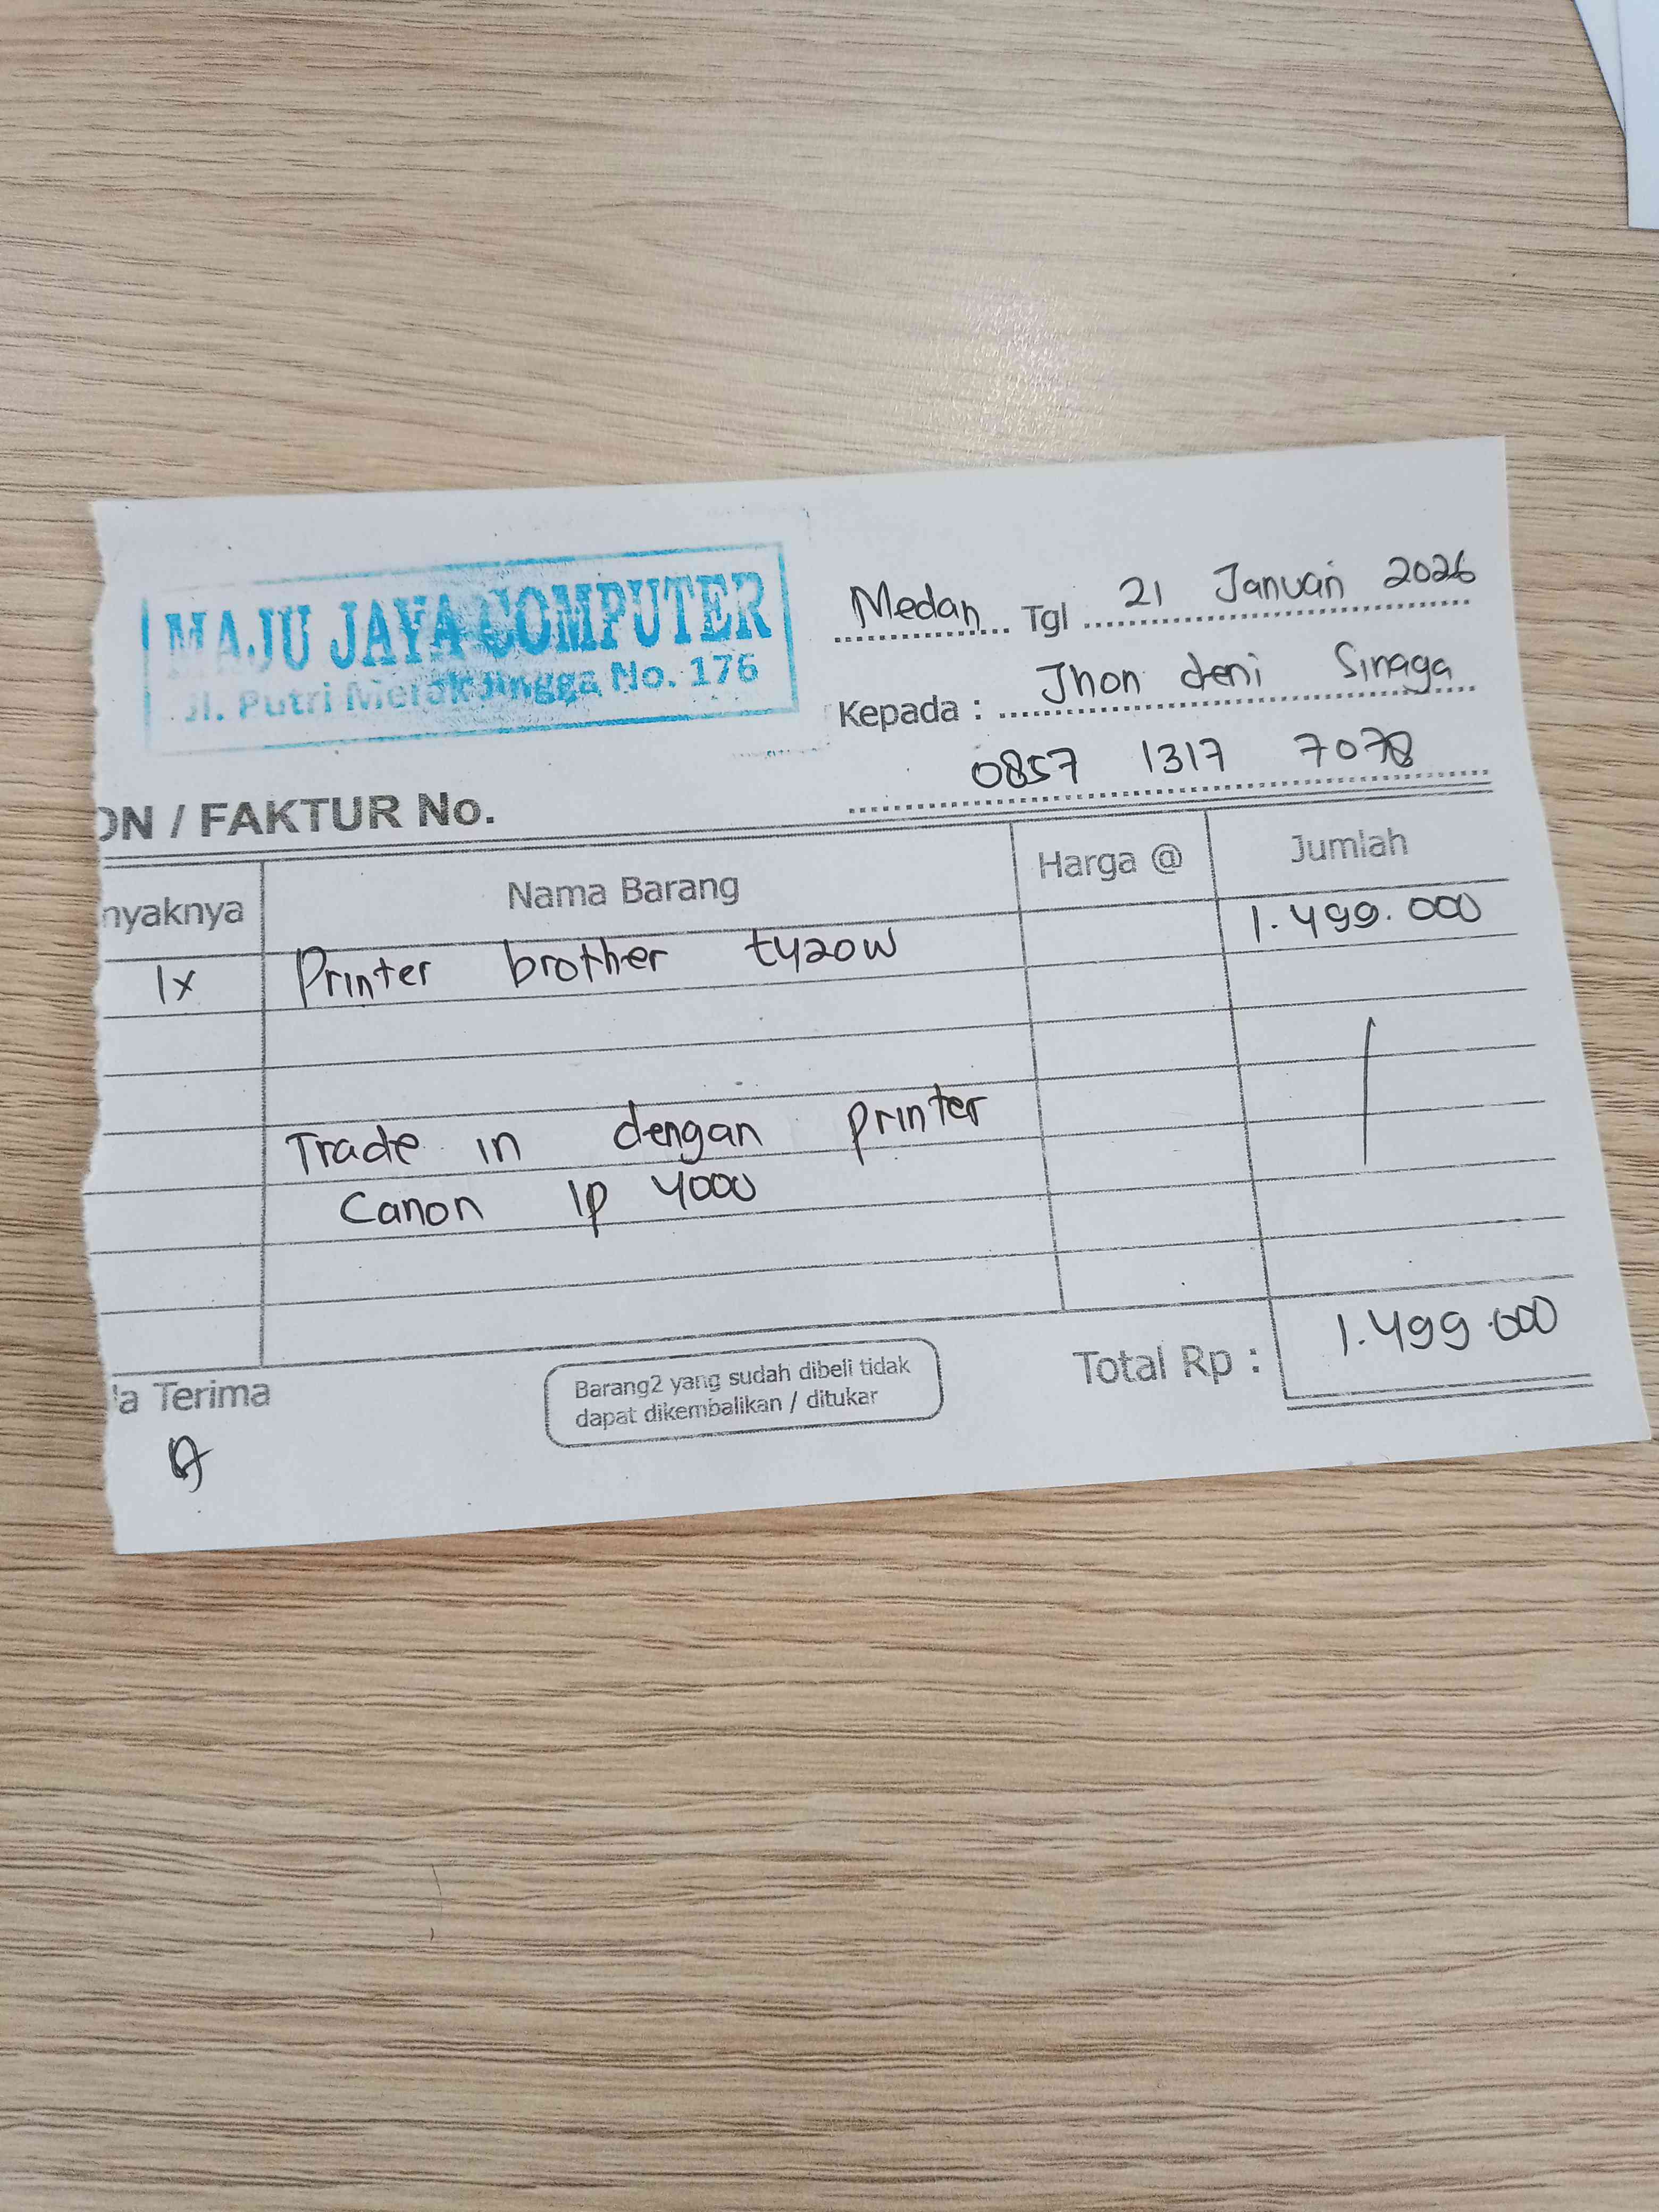 MAJU JAYA COMPUTER
Jl. Putri Merak Jingga No. 176
Medan Tgl 21 Januari 2026
Kepada : Jhon deni Sinaga
0857 1317 7078
ON / FAKTUR No.
nyaknya Nama Barang Harga @ Jumlah
1x Printer brother t420w 1.499.000
Trade in dengan printer
Canon ip 4000
la Terima
Barang2 yang sudah dibeli tidak
dapat dikembalikan / ditukar
Total Rp : 1.499.000